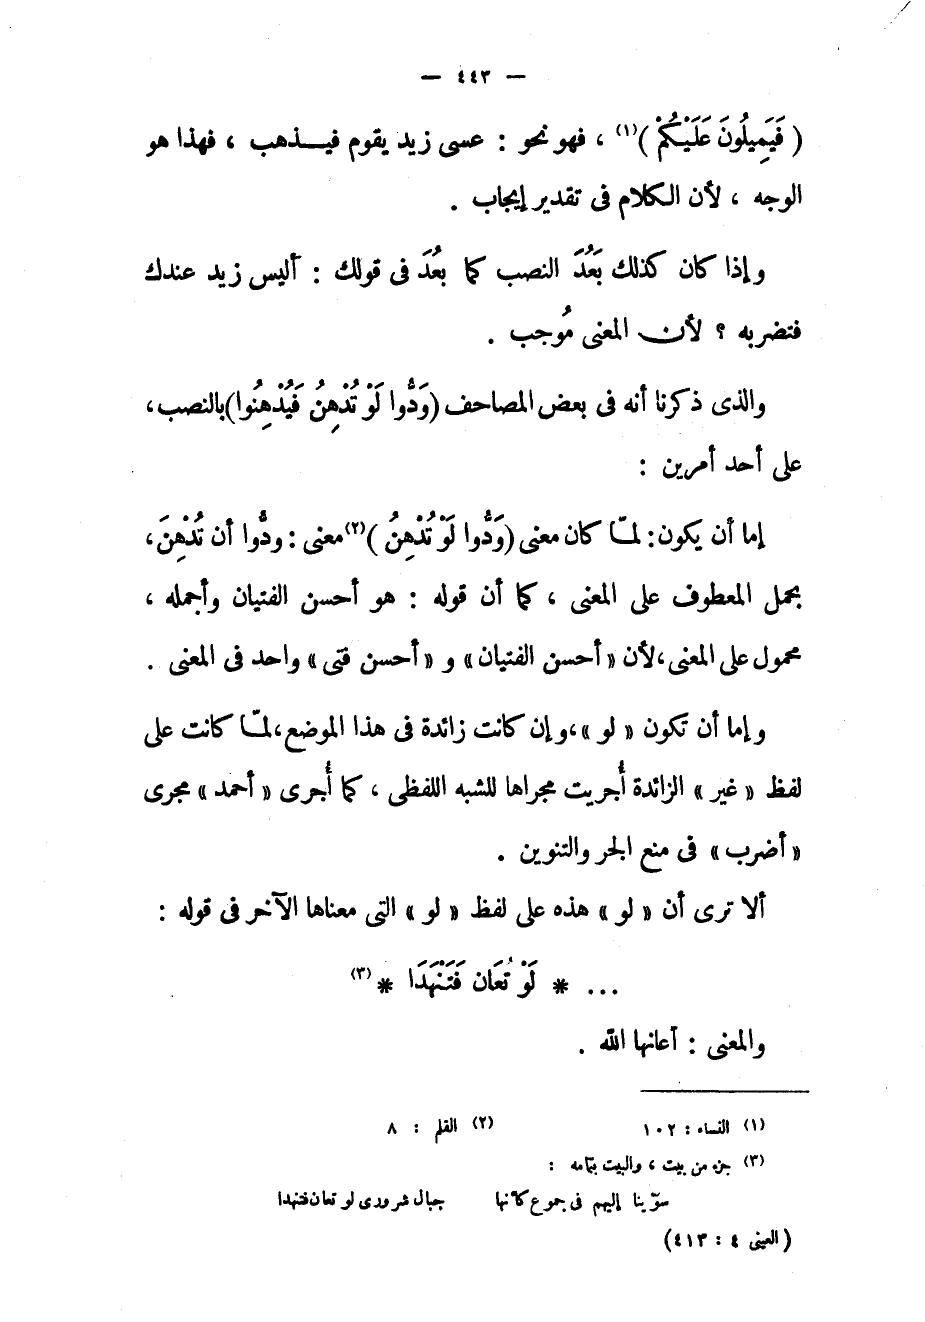 — ٤٤٣ —
( فَيَمِيلُونَ عَلَيْكُمْ )(١) ، فهو نحو : عسى زيد يقوم فيــذهب ، فهذا هو
الوجه ، لأن الكلام فى تقدير إيجاب .
وإذا كان كذلك بَعُدَ النصب كما بعُدَ فى قولك : أليس زيد عندك
فتضربه ؟ لأن المعنى مُوجب .
والذى ذكرنا أنه فى بعض المصاحف (وَدُّوا لَوْ تُدْهِنُ فَيُدْهِنُوا)بالنصب،
على أحد أمرين :
إما أن يكون: لمـّا كان معنى (وَدُّوا لَوْ تُدْهِنُ )(٢)معنى : ودُّوا أن تُدْهِنَ،
بحمل المعطوف على المعنى ، كما أن قوله : هو أحسن الفتيان وأجمله ،
محمول على المعنى،لأن «أحسن الفتيان» و «أحسن فتى» واحد فى المعنى .
وإما أن تكون « لو »،وإن كانت زائدة فى هذا الموضع،لمـّا كانت على
لفظ « غير » الزائدة أُجريت مجراها للشبه اللفظى ، كما أُجرى « أحمد » مجرى
« أضرب » فى منع الجر والتنوين .
ألا ترى أن « لو » هذه على لفظ « لو » التى معناها الآخر فى قوله :
... * لَوْ تُعَان فَتَنْهَدَا * (٣)
والمعنى : أعانها الله .
(١) النساء : ١٠٢ (٢) القلم : ٨
(٣) جزء من بيت ، والبيت بتمامه :
سوّينا إليهم فى جموع كأنها جبال شرورى لو تعان فتنهدا
( العينى ٤ : ٤١٣)